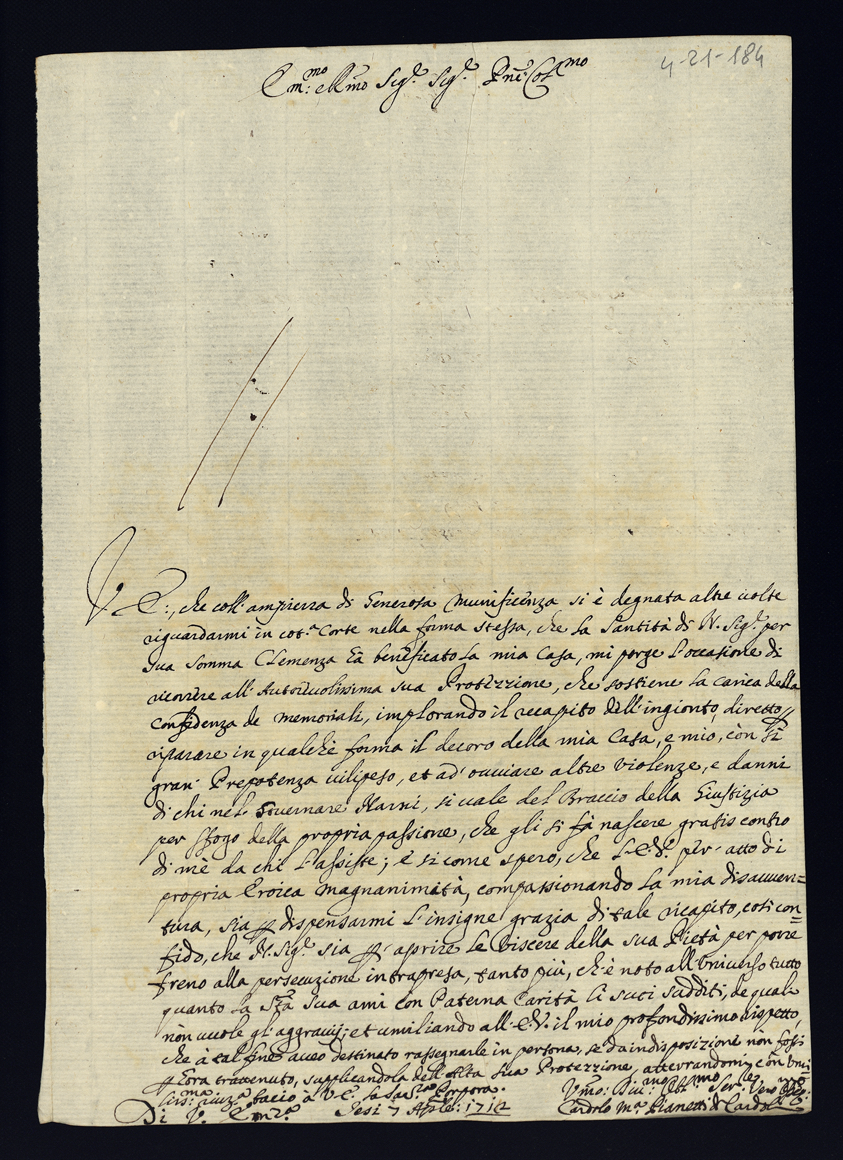 4-21-184
Em:mo e Rmo Sig.r Sig.r Pne Col.mo
V. E:, che coll'ampiezza di Generosa Munificenza si è degnata altre uolte
riguardarmi in cot.a Corte nella forma stessa, che La Santità di N. Sig.r per
sua somma Clemenza hà beneficato La mia Casa, mi porge L'occasione di
ricorrere all'Autoreuolissima sua Protezzione, che sostiene La carica della
Confidenza de Memoriali, implorando il recapito dell'ingionto, diretto
riparare in qualche forma il decoro della mia Casa, e mio, còn
gran Prepotenza uilipeso, et ad'ouuiare altre Violenze, e danni
di chi nel Gouernare Narni, si uale del Braccio della Giustizia
per sfogo della propria passione, che gli si fà nascere gratis contro
di mè da chi L'assiste; e si come spero, che L'E.V. per atto di
propria Eroica Magnanimità, compassionando La mia disauuen=
tura, sia p dispensarmi L'insigne grazia di tale ricapito, così con=
fido, che N. Sig.r sia p aprire Le Viscere della sua Pietà per porre
freno alla persecuzione intrapresa, tanto più, che è noto all'Vniuerso tutto
quanto La S.tà Sua ami còn Paterna Carità li suoi sudditi, de quali
nòn uuole gl'aggrauij; et umiliando all'E.V. il mio profondissimo rispetto,
che à tal fine aueo destinato rassegnarle in persona, se da indisposizione nòn fossi
p ora trattenuto, supplicandola dell'Alta Sua Protezione, atterrandomi còn Vmi
bacio à V.E. La Sac.ra Porpora.
Di V. Em.za Jesi 7 Aprle: 1712
Vmo: Diu.mo Obb.mo Ser.re Vero
Cardolo M.a Pianetti de Cardoli